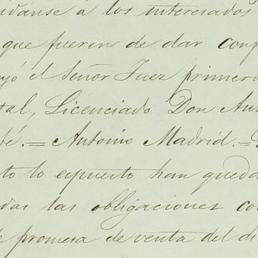 ndanse á los interesados
que fueren de dar conf
jó el Señor Juez primero
tal, Licenciado Don Au
bé.= Antonio Madrid.=
to lo expuesto han queda
das las obligaciones co
e promesa de venta del di